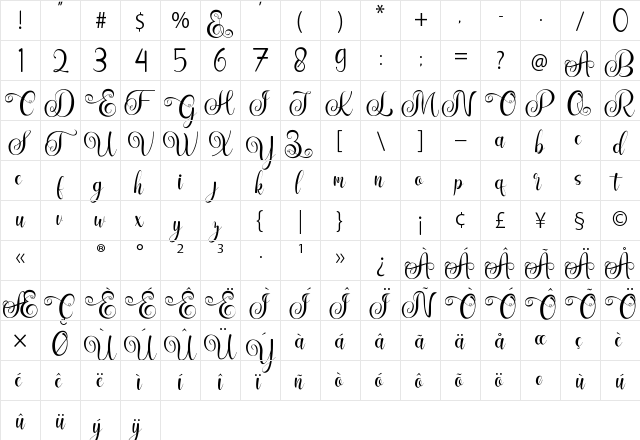 ! " # $ % & ' ( ) * + , - . / 0
1 2 3 4 5 6 7 8 9 : ; = ? @ A B
C D E F G H I J K L M N O P Q R
S T U V W X Y Z [ \ ] _ a b c d
e f g h i j k l m n o p q r s t
u v w x y z { | } ¡ ¢ £ ¥ § ©
« ® ° 2 3 · 1 » ¿ À Á Â Ã Ä Å
Æ Ç È É Ê Ë Ì Í Î Ï Ñ Ò Ó Ô Õ Ö
× Ø Ù Ú Û Ü Ý à á â ã ä å æ ç è
é ê ë ì í î ï ñ ò ó ô õ ö ø ù ú
û ü ý ÿ